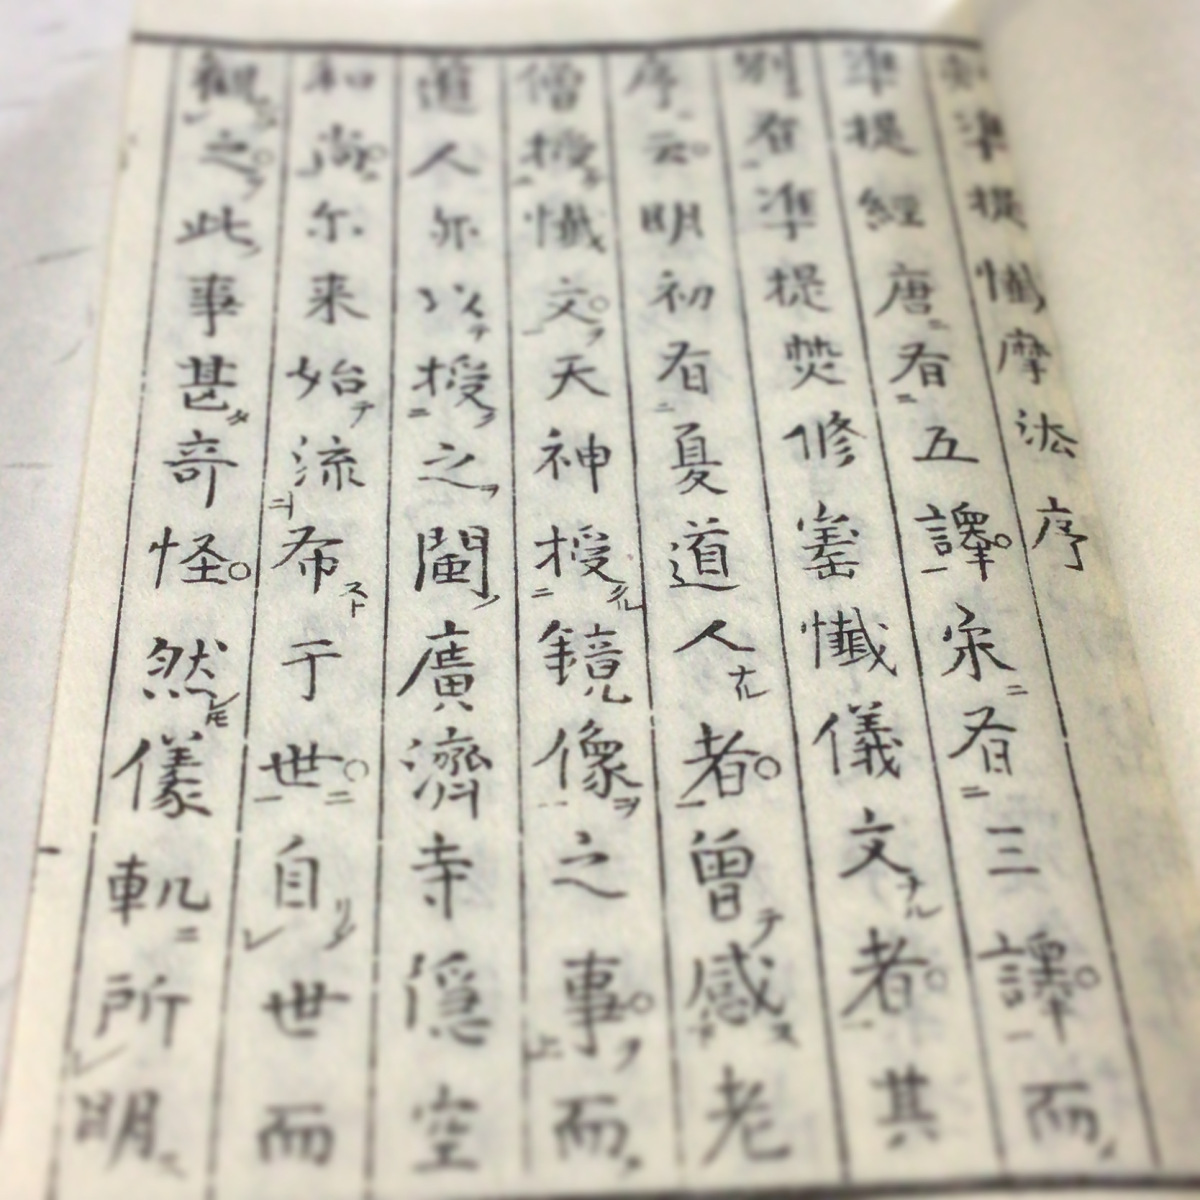 刻準提懺摩法序
準提經唐有五譯。宋有三譯。而
別有準提焚修寶懺儀文者。其
序云。明初有夏道人者。曾感老
僧授懺文。天神授鏡像之事。而
道人亦以授之閩廣濟寺隱空
和尚。尓来始流希于世。自世而
觀之。此事甚奇怪。然儀軌所明